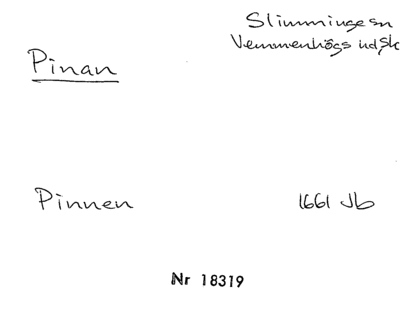 Slimminge sn
Vemmenhögs hd Sk
Pinan
Pinnen 1661 Jb
Nr 18319